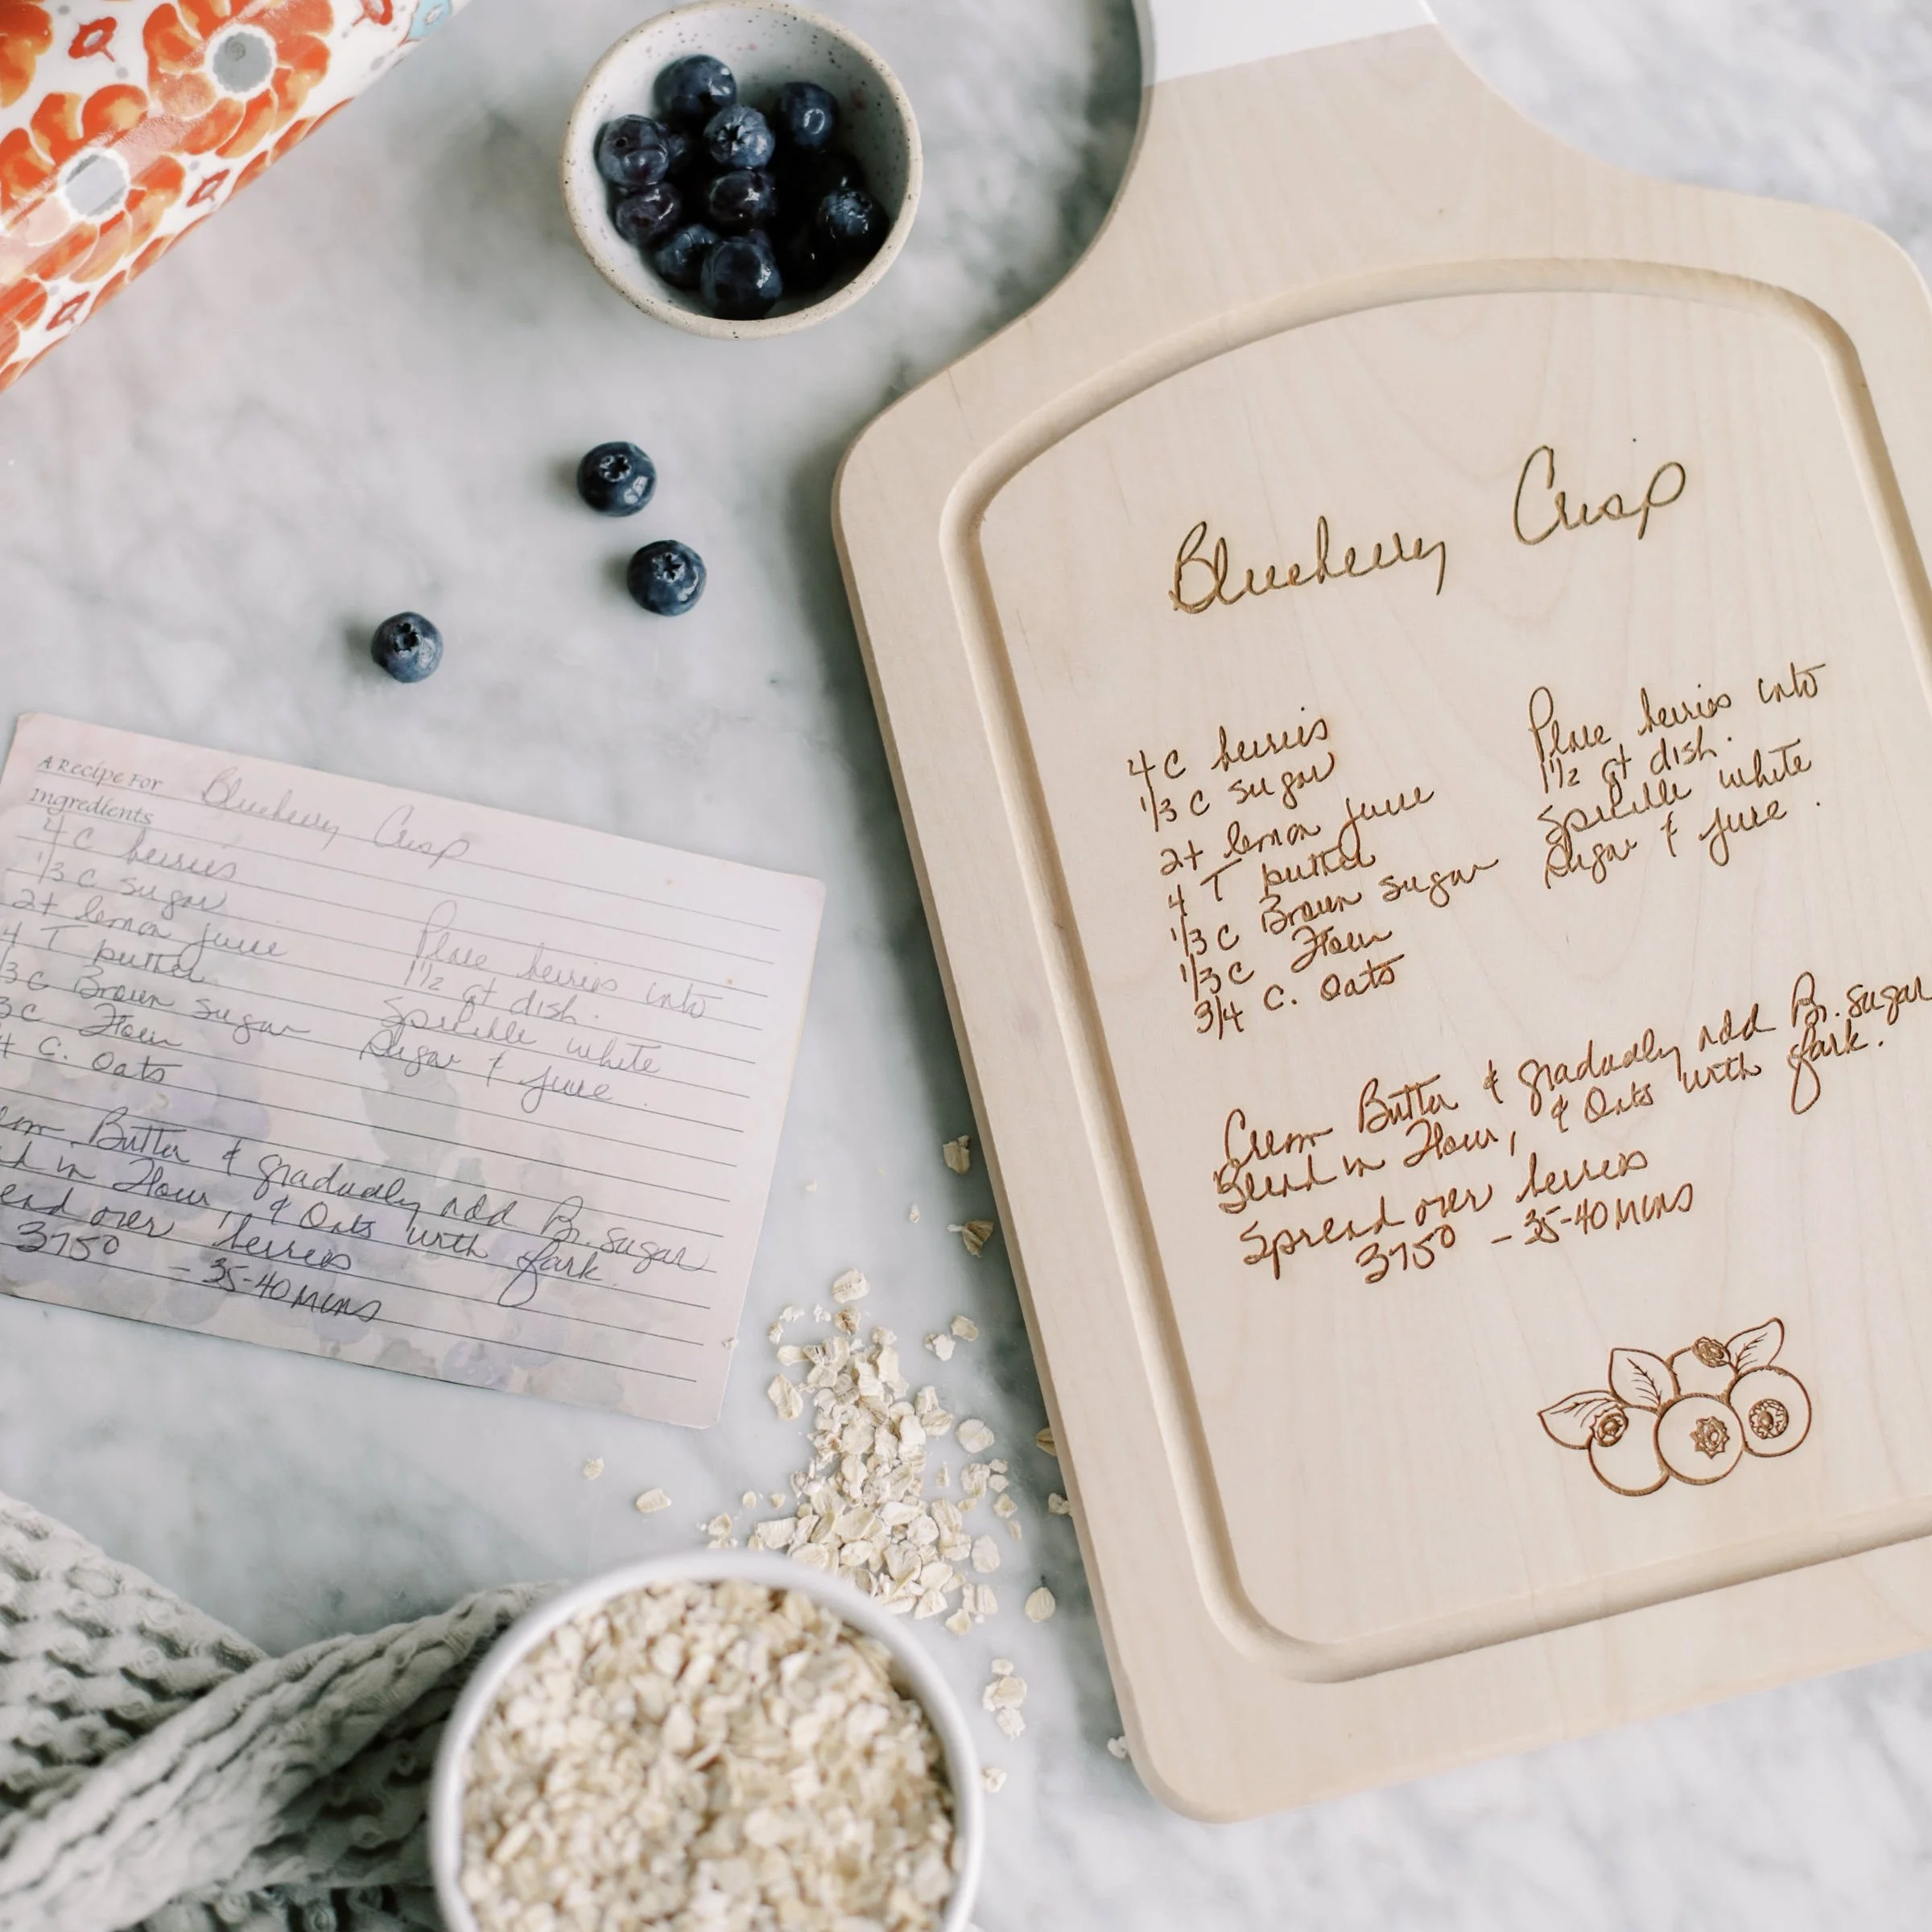 A Recipe For Blueberry Crisp
Ingredients
4 C berries
1/3 C sugar
2t lemon juice
4 T butter
/3 C Brown sugar
3 C Flour
4 C. Oats
Place berries into
1 1/2 qt dish.
Sprinkle white
Sugar & juice.
Butter & gradually add Br. sugar
in Flour, & Oats with fork.
over berries
375° - 35-40 mins
Blueberry Crisp
4 C berries
1/3 C sugar
2t lemon juice
4 T butter
1/3 C Brown sugar
1/3 C Flour
3/4 C. Oats
Place berries into
1 1/2 qt dish.
Sprinkle white
Sugar & juice.
Cream Butter & gradually add Br. sugar
Blend in Flour, & Oats with fork.
Spread over berries
375° - 35-40 mins